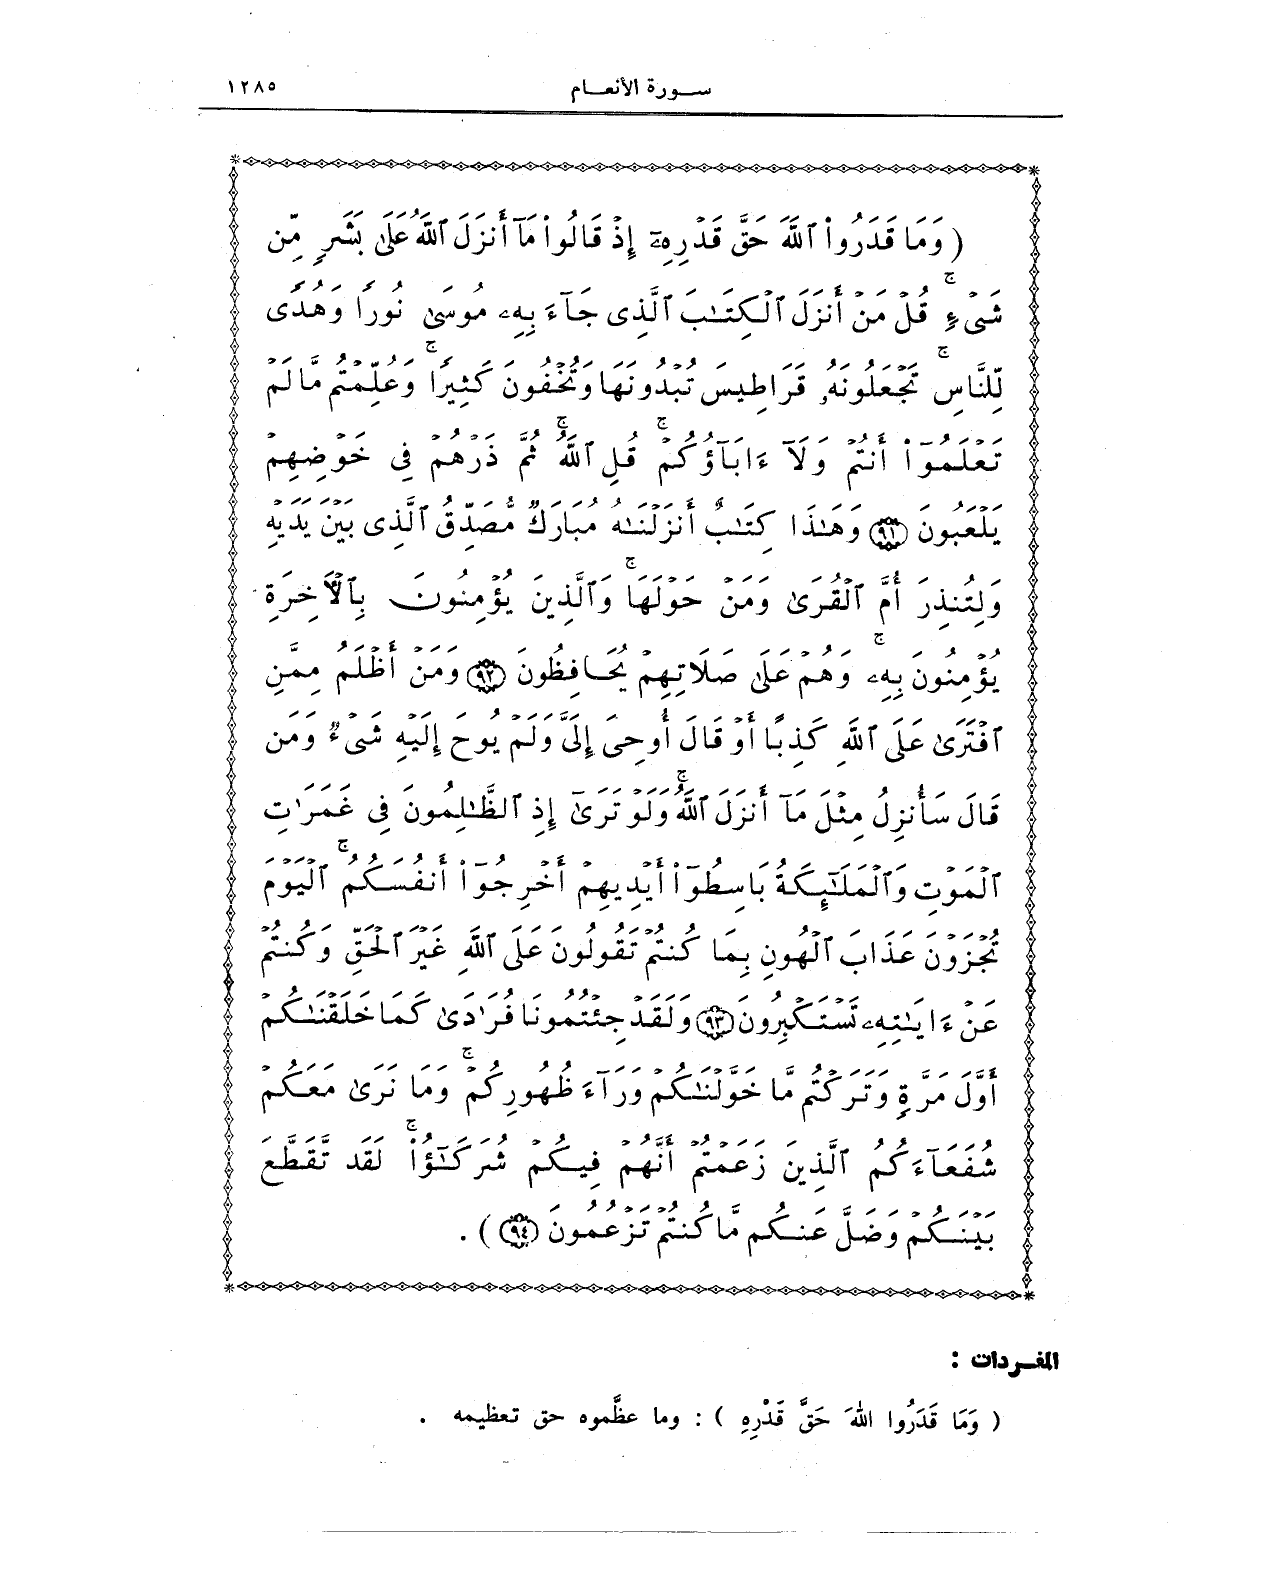 سـورة الأنعـام ١٢٨٥
( وَمَا قَدَرُوا۟ ٱللَّهَ حَقَّ قَدْرِهِۦٓ إِذْ قَالُوا۟ مَآ أَنزَلَ ٱللَّهُ عَلَىٰ بَشَرٍ مِّن
شَىْءٍ ۗ قُلْ مَنْ أَنزَلَ ٱلْكِتَـٰبَ ٱلَّذِى جَآءَ بِهِۦ مُوسَىٰ نُورًا وَهُدًى
لِّلنَّاسِ ۖ تَجْعَلُونَهُۥ قَرَاطِيسَ تُبْدُونَهَا وَتُخْفُونَ كَثِيرًا ۖ وَعُلِّمْتُم مَّا لَمْ
تَعْلَمُوٓا۟ أَنتُمْ وَلَآ ءَابَآؤُكُمْ ۖ قُلِ ٱللَّهُ ۖ ثُمَّ ذَرْهُمْ فِى خَوْضِهِمْ
يَلْعَبُونَ ﴿٩١﴾ وَهَـٰذَا كِتَـٰبٌ أَنزَلْنَـٰهُ مُبَارَكٌ مُّصَدِّقُ ٱلَّذِى بَيْنَ يَدَيْهِ
وَلِتُنذِرَ أُمَّ ٱلْقُرَىٰ وَمَنْ حَوْلَهَا ۚ وَٱلَّذِينَ يُؤْمِنُونَ بِٱلْـَٔاخِرَةِ
يُؤْمِنُونَ بِهِۦ ۖ وَهُمْ عَلَىٰ صَلَاتِهِمْ يُحَـافِظُونَ ﴿٩٢﴾ وَمَنْ أَظْلَمُ مِمَّنِ
ٱفْتَرَىٰ عَلَى ٱللَّهِ كَذِبًا أَوْ قَالَ أُوحِىَ إِلَىَّ وَلَمْ يُوحَ إِلَيْهِ شَىْءٌ وَمَن
قَالَ سَأُنزِلُ مِثْلَ مَآ أَنزَلَ ٱللَّهُ ۗ وَلَوْ تَرَىٰٓ إِذِ ٱلظَّـٰلِمُونَ فِى غَمَرَٰتِ
ٱلْمَوْتِ وَٱلْمَلَـٰٓئِكَةُ بَاسِطُوٓا۟ أَيْدِيهِمْ أَخْرِجُوٓا۟ أَنفُسَكُمُ ۖ ٱلْيَوْمَ
تُجْزَوْنَ عَذَابَ ٱلْهُونِ بِمَا كُنتُمْ تَقُولُونَ عَلَى ٱللَّهِ غَيْرَ ٱلْحَقِّ وَكُنتُمْ
عَنْ ءَايَـٰتِهِۦ تَسْتَكْبِرُونَ ﴿٩٣﴾ وَلَقَدْ جِئْتُمُونَا فُرَٰدَىٰ كَمَا خَلَقْنَـٰكُمْ
أَوَّلَ مَرَّةٍ وَتَرَكْتُم مَّا خَوَّلْنَـٰكُمْ وَرَآءَ ظُهُورِكُمْ ۖ وَمَا نَرَىٰ مَعَكُمْ
شُفَعَآءَكُمُ ٱلَّذِينَ زَعَمْتُمْ أَنَّهُمْ فِيكُمْ شُرَكَـٰٓؤُا۟ ۚ لَقَد تَّقَطَّعَ
بَيْنَكُمْ وَضَلَّ عَنكُم مَّا كُنتُمْ تَزْعُمُونَ ﴿٩٤﴾ ) .
المفـردات :
( وَمَا قَدَرُوا اللهَ حَقَّ قَدْرِهِ ) : وما عظَّموه حق تعظيمه .